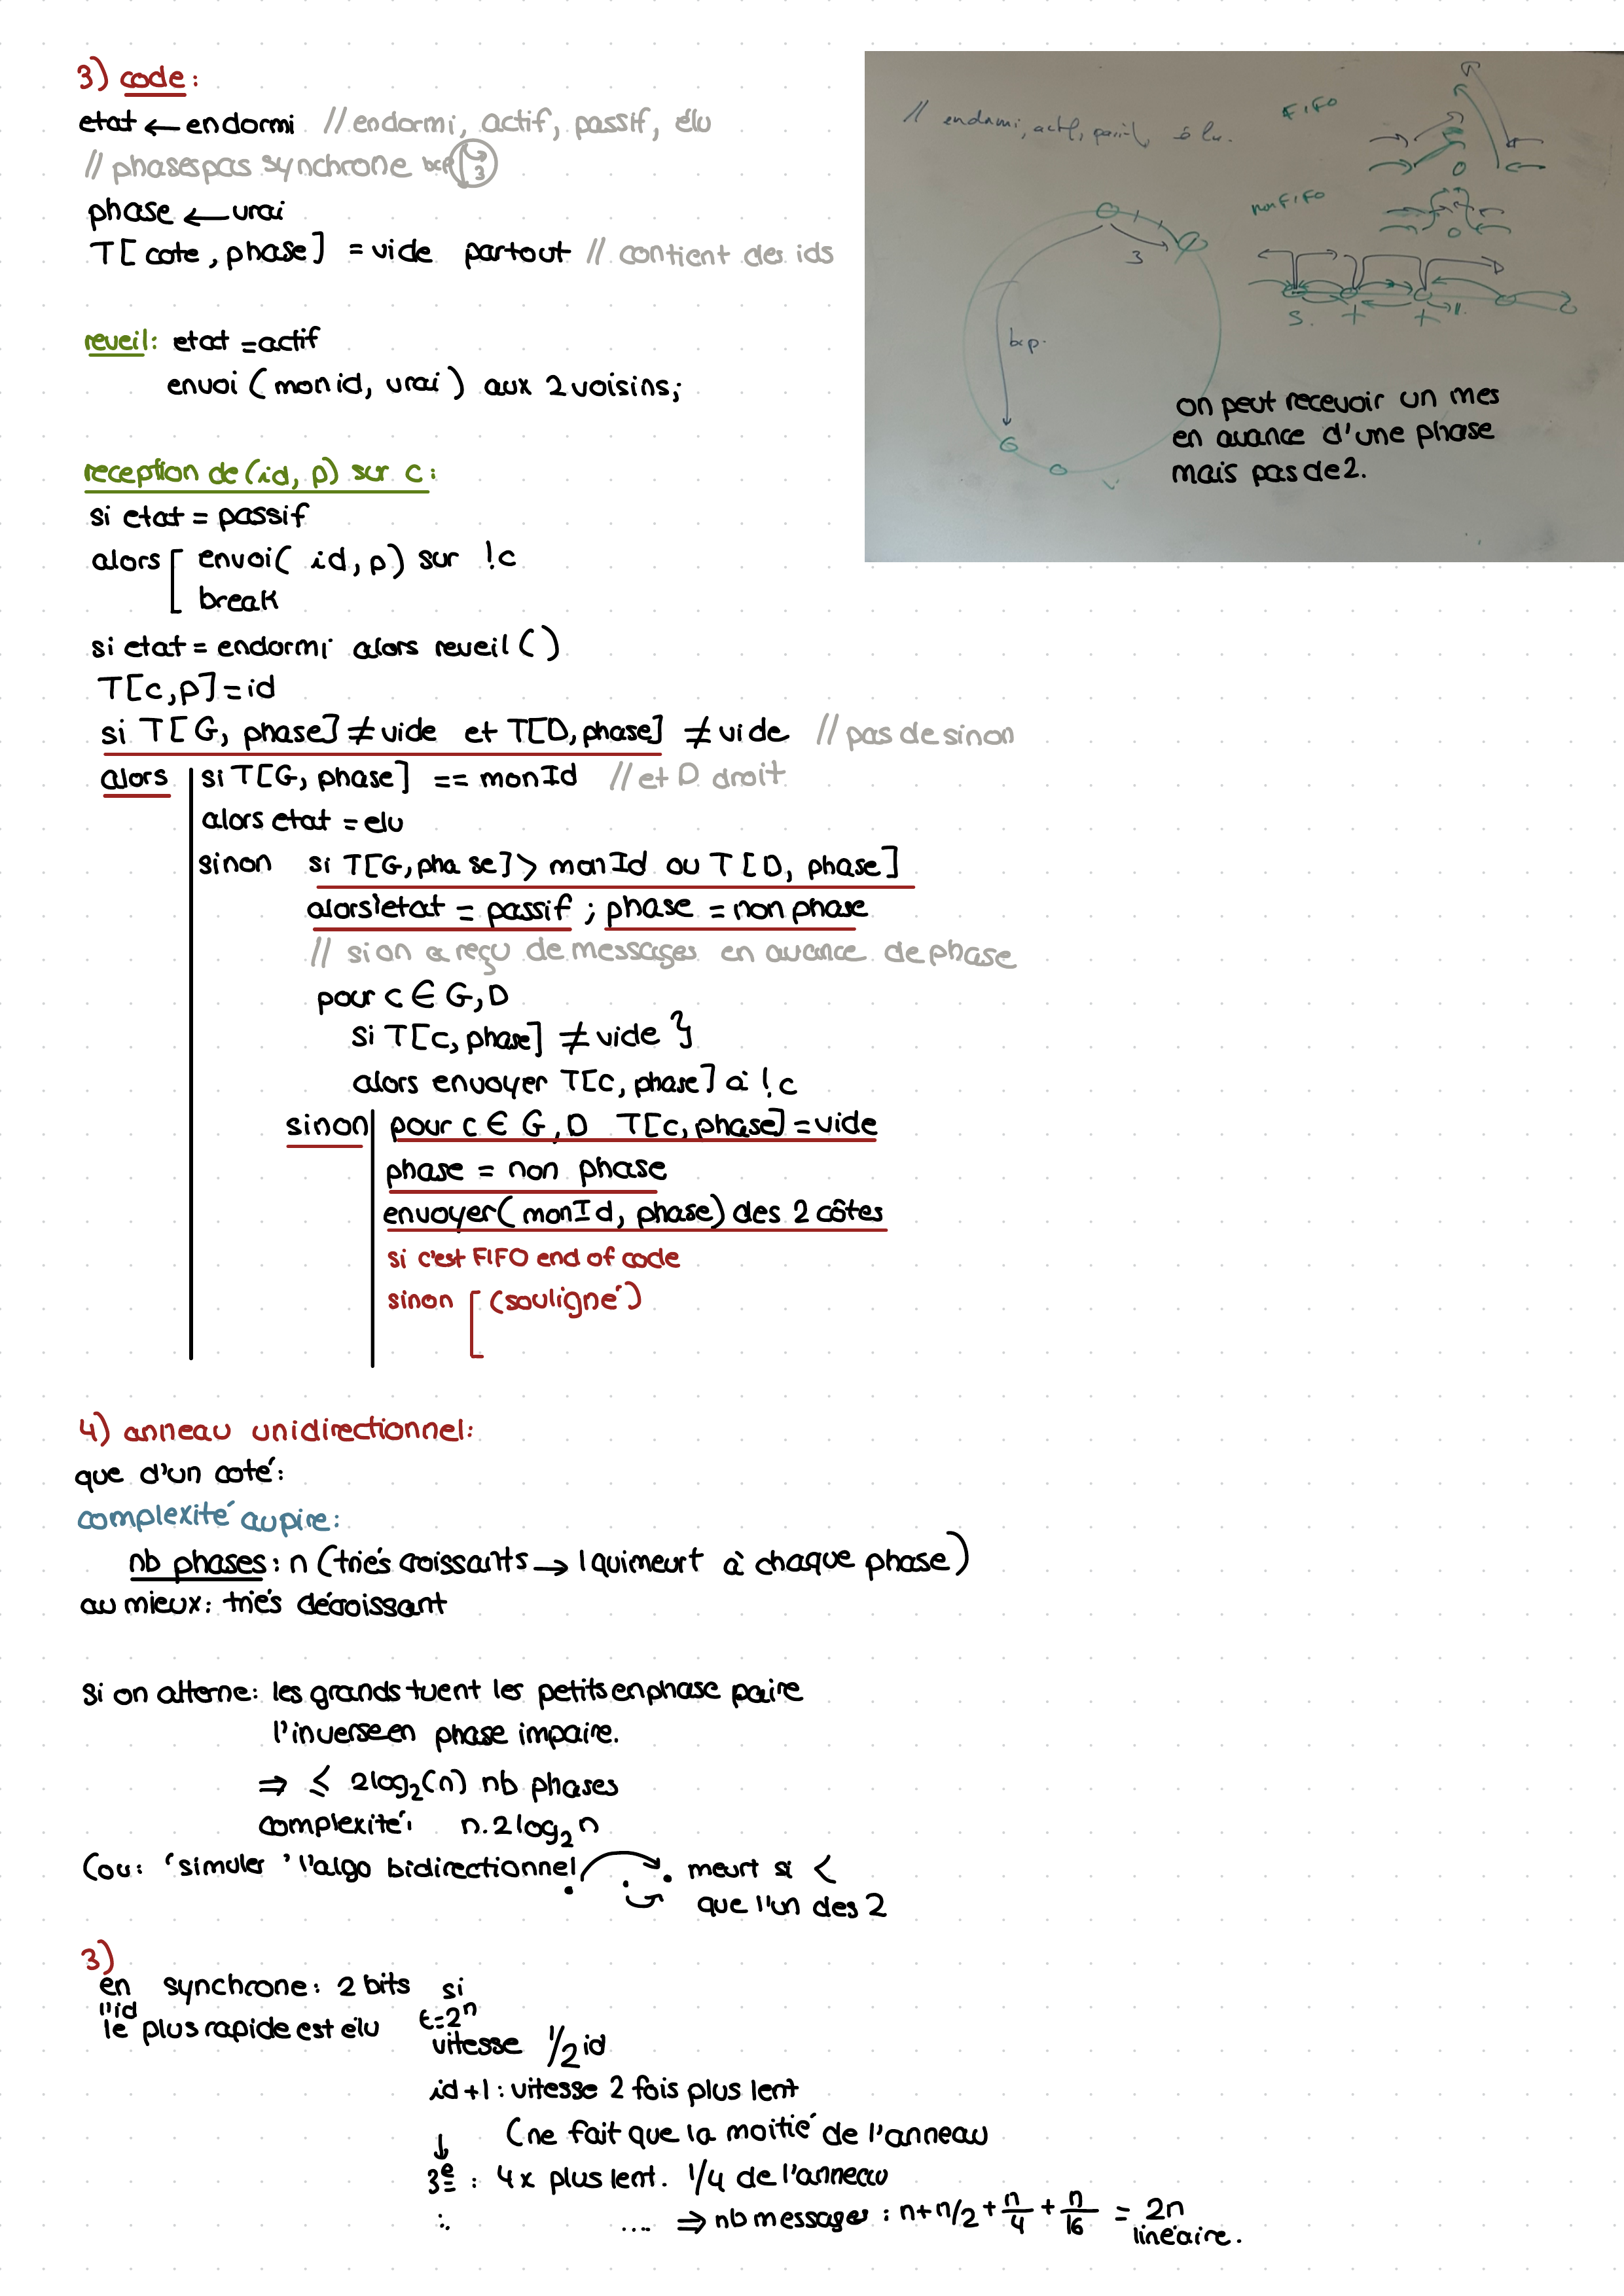 3) code :
etat ← endormi // endormi, actif, passif, élu
// phases pas synchrone bcp 3
phase ← vrai
T[cote, phase] = vide partout // contient des ids
reveil : etat = actif
envoi (mon id, vrai) aux 2 voisins;
reception de (id, p) sur c :
si etat = passif
alors envoi( id, p) sur !c
break
si etat = endormi alors reveil ()
T[c,p] = id
si T[G, phase] ≠ vide et T[D, phase] ≠ vide // pas de sinon
alors si T[G, phase] == monId // et D droit
alors etat = elu
sinon si T[G, phase] > monId ou T[D, phase]
alors etat = passif ; phase = non phase
// si on a reçu de messages en avance de phase
pour c ∈ G, D
si T[c, phase] ≠ vide }
alors envoyer T[c, phase] à !c
sinon pour c ∈ G, D T[c, phase] = vide
phase = non phase
envoyer( monId, phase) des 2 côtes
si c'est FIFO end of code
sinon (souligné)
// endormi, actif, passif, élu.
FIFO
non FIFO
3
bcp.
S. + + "
on peut recevoir un mes
en avance d'une phase
mais pas de 2.
4) anneau unidirectionnel :
que d'un coté :
complexité au pire :
nb phases : n (triés croissants → 1 qui meurt à chaque phase)
au mieux : triés décroissant
Si on alterne : les grands tuent les petits en phase paire
l'inverse en phase impaire.
⇒ ≤ 2log₂(n) nb phases
complexité : n.2log₂n
(ou : 'simuler' l'algo bidirectionnel meurt si <
que l'un des 2
3)
en synchrone : 2 bits si
l'id
le plus rapide est élu t=2ⁿ
vitesse 1/2 id
id+1 : vitesse 2 fois plus lent
(ne fait que la moitié de l'anneau
↓
3e : 4x plus lent. 1/4 de l'anneau
⋮ .... ⇒ nb messages : n + n/2 + n/4 + n/16 = 2n
linéaire.